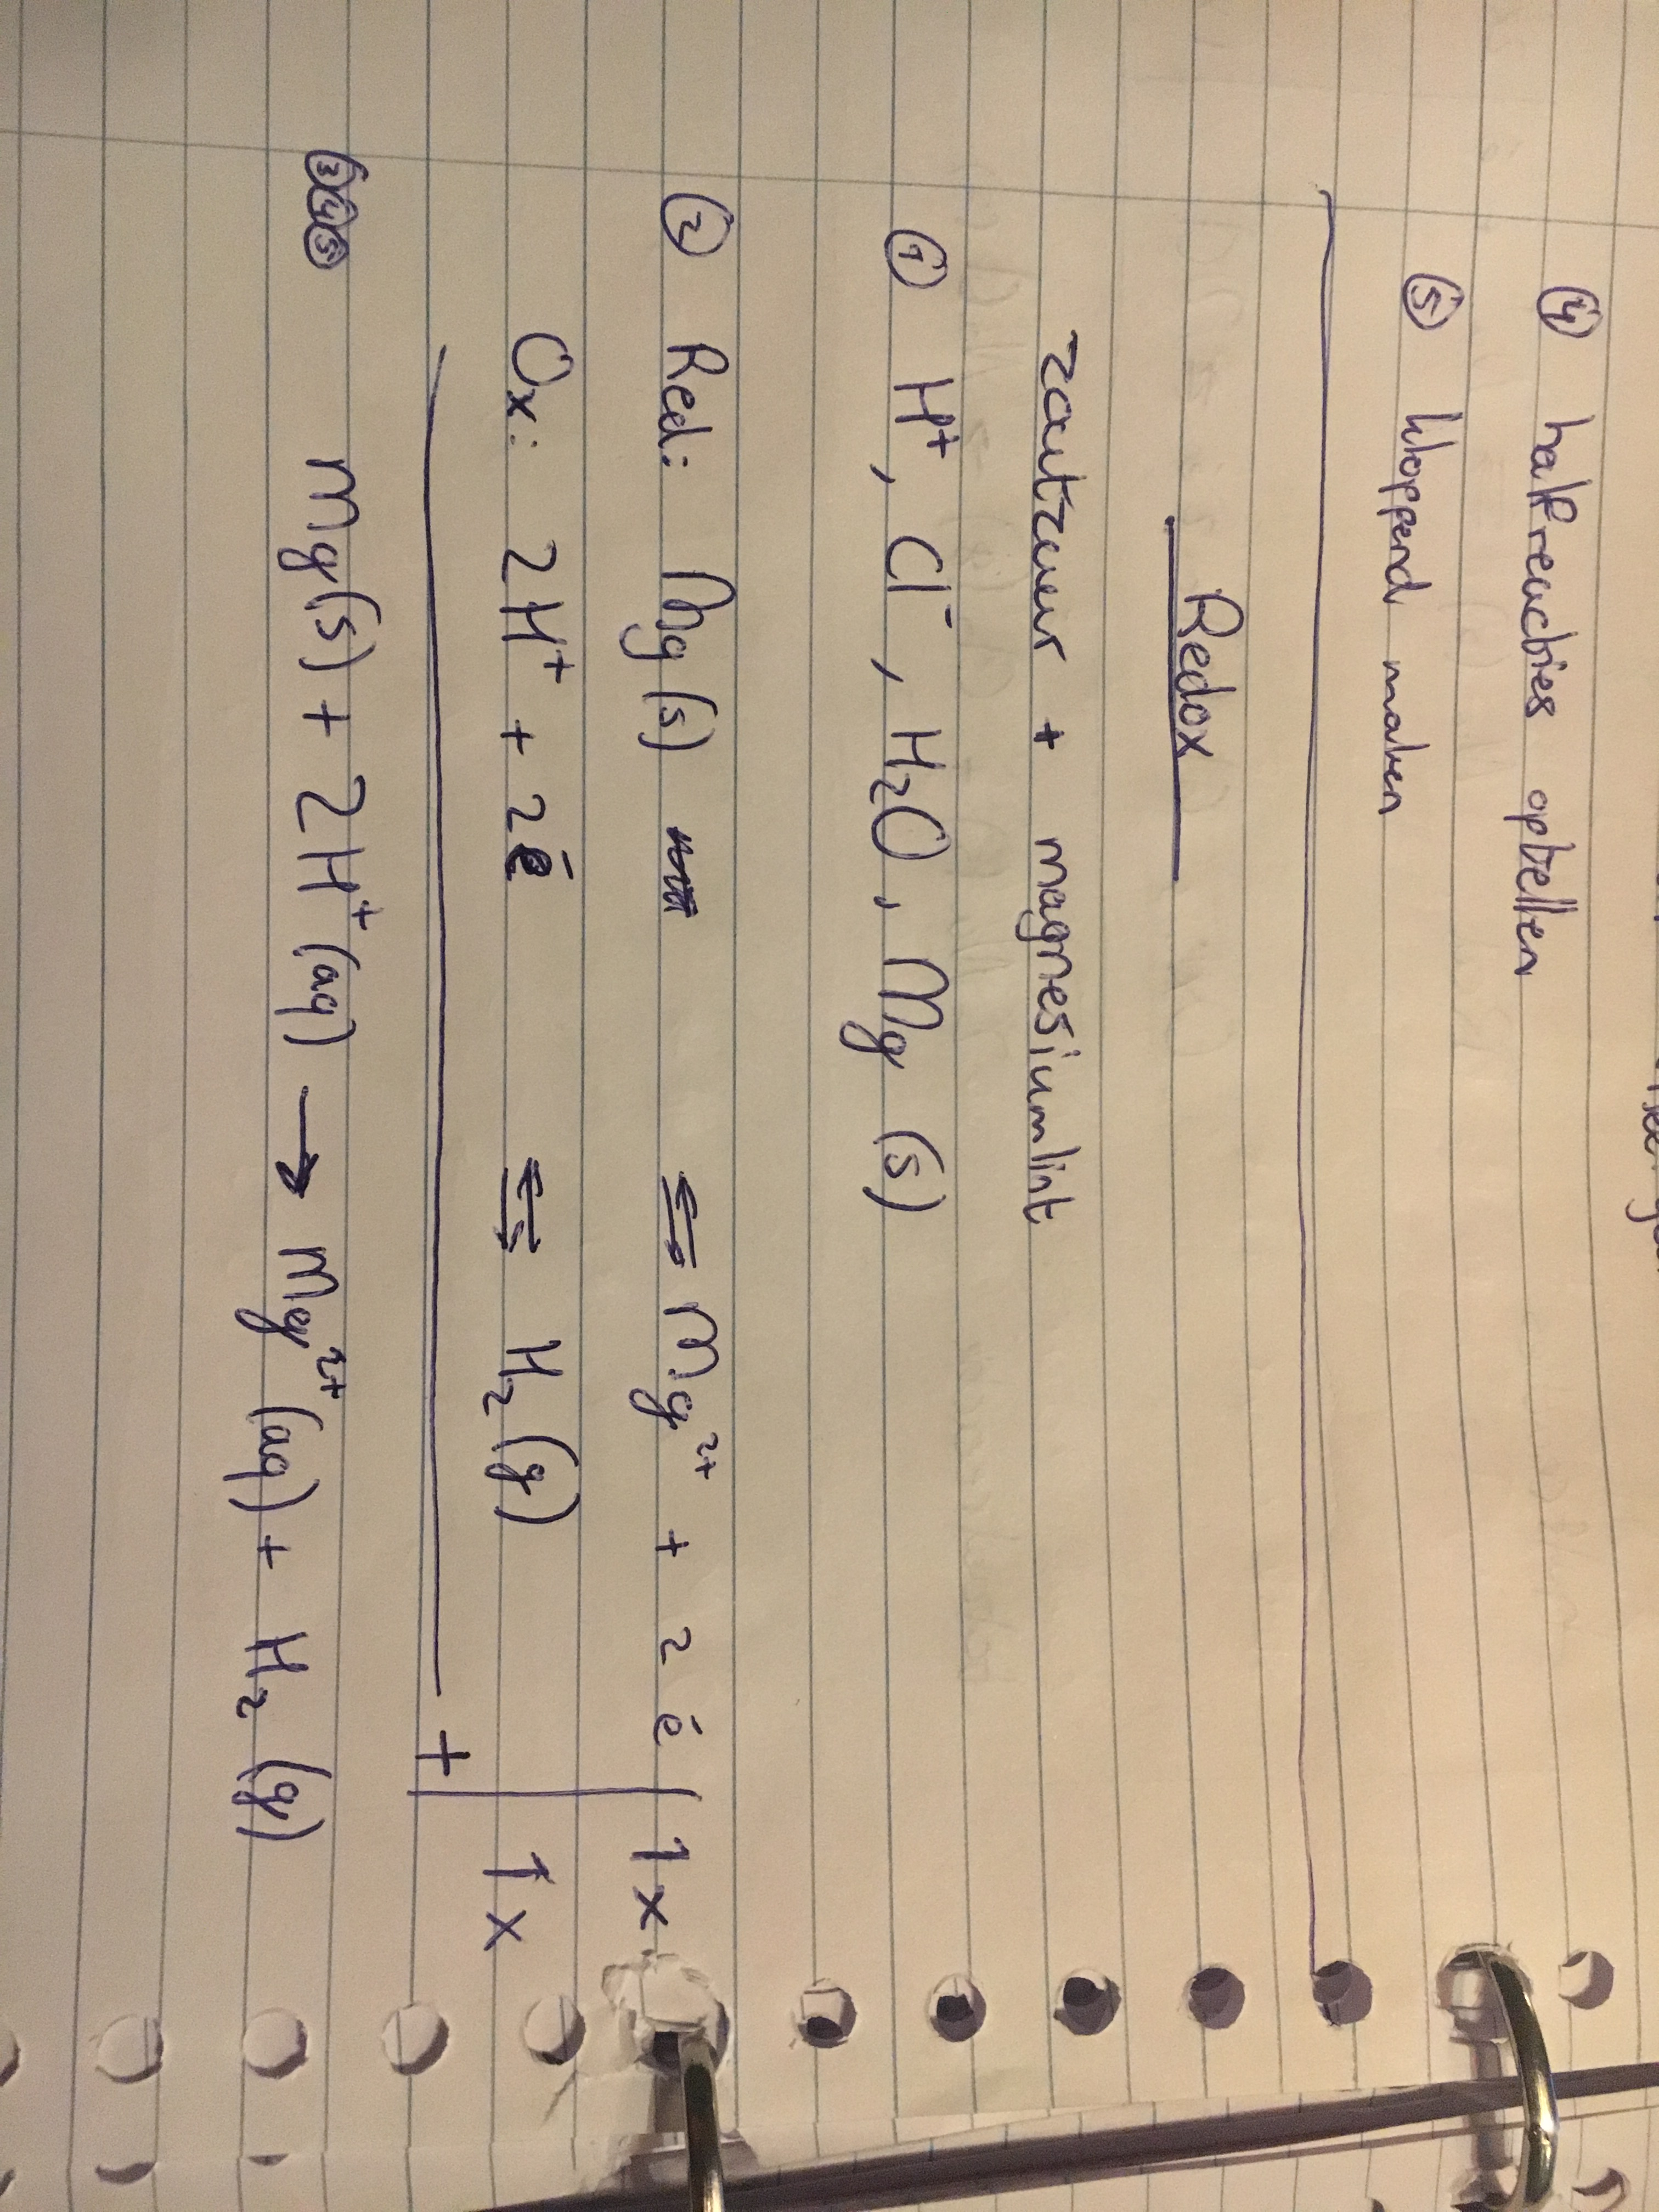 ④ halfreacties optellen
⑤ kloppend maken
Redox
zoutzuur + magnesiumlint
① H⁺, Cl⁻, H₂O, Mg (s)
② Red: Mg (s) ⇌ Mg²⁺ + 2 e⁻ | 1x
Ox: 2H⁺ + 2e⁻ ⇌ H₂ (g) | 1x
+
③④⑤ Mg(s) + 2H⁺ (aq) → Mg²⁺ (aq) + H₂ (g)